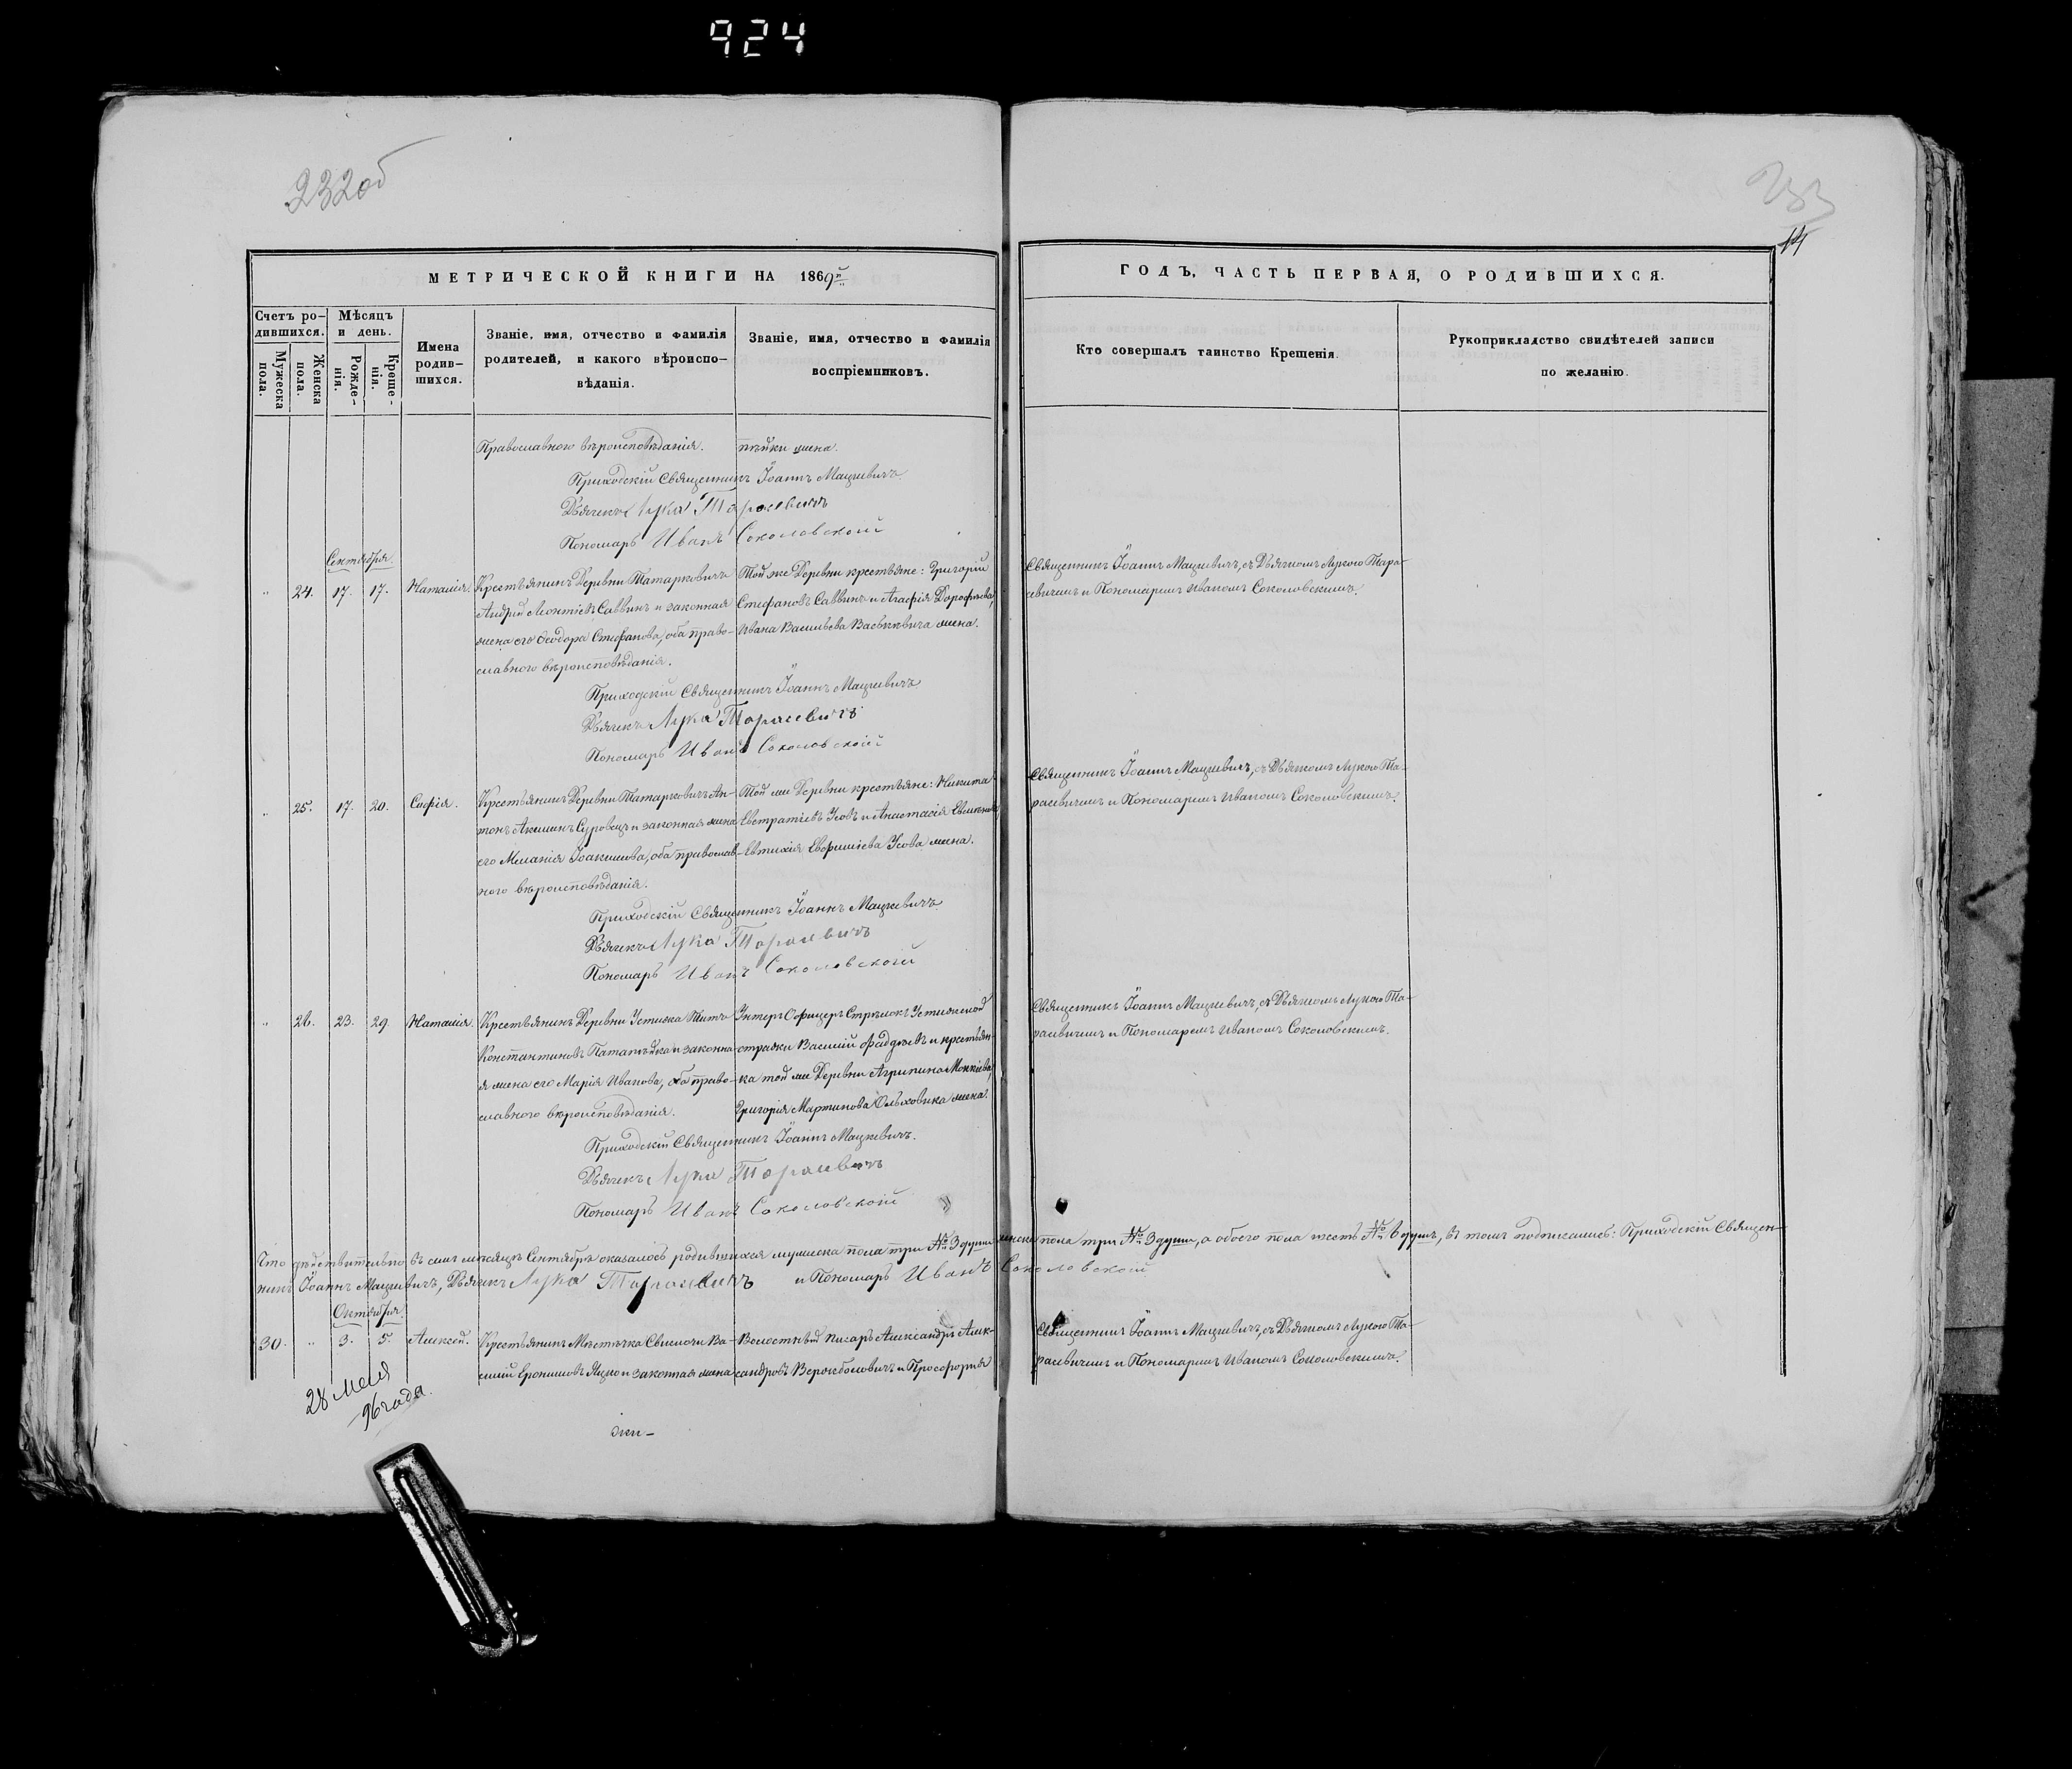 924
232об
233
14
МЕТРИЧЕСКОЙ КНИГИ НА 1869й
ГОДЪ, ЧАСТЬ ПЕРВАЯ, О РОДИВШИХСЯ.
Счетъ ро-
дившихся.
Мужеска
пола.
Женска
пола.
Мѣсяцъ
и день.
Рожде-
нія.
Креще-
нія.
Имена
родив-
шихся.
Званіе, имя, отчество и фамилія
родителей, и какого вѣроиспо-
вѣданія.
Званіе, имя, отчество и фамилія
воспріемниковъ.
Кто совершалъ таинство Крещенія.
Рукоприкладство свидѣтелей записи
по желанію.
Православного вѣроисповѣданія.
жена.
Приходскій Священникъ Іоаннъ Мацкевичъ
Дьячекъ Лука Тарасевичъ
Пономарь Иванъ Соколовскій
Сентября
" 24. 17. 17. Наталія.
Крестьянинъ Деревни Татарковичъ
Андрей Леонтіевъ Саввинъ и законная
жена его Ѳеодора Стефанова, оба право-
славного вѣроисповѣданія.
Той же Деревни крестьяне: Григорій
Стефановъ Саввинъ и Агафія Дорофѣева,
Ивана Васильева жена.
Священникъ Іоаннъ Мацкевичъ, съ Дьячкомъ Лукою Тара-
севичемъ и Пономаремъ Иваномъ Соколовскимъ.
Приходскій Священникъ Іоаннъ Мацкевичъ
Дьячекъ Лука Тарасевичъ
Пономарь Иванъ Соколовскій
" 25. 17. 20. Софія.
Крестьянинъ Деревни Татарковичъ Ан-
тонъ Суровецъ и законная жена
его Меланія Іоакимова, оба православ-
ного вѣроисповѣданія.
Той же Деревни крестьяне: Никита
Евстратіевъ Усовъ и Анастасія
Евтихія Усова жена.
Священникъ Іоаннъ Мацкевичъ, съ Дьячкомъ Лукою Та-
расевичемъ и Пономаремъ Иваномъ Соколовскимъ.
Приходскій Священникъ Іоаннъ Мацкевичъ
Дьячекъ Лука Тарасевичъ
Пономарь Иванъ Соколовскій
" 26. 23. 29. Наталія.
Крестьянинъ Деревни Устижа Титъ
Константиновъ и законна-
я жена его Марія Иванова, оба право-
славного вѣроисповѣданія.
Унтеръ Офицеръ Стрѣлокъ Устижской
стражи Василій Фаддѣевъ и крестьян-
ка той же Деревни Агрипина
Григорія Мартинова Ольховика жена.
Священникъ Іоаннъ Мацкевичъ, съ Дьячкомъ Лукою Та-
расевичемъ и Пономаремъ Иваномъ Соколовскимъ.
Приходскій Священникъ Іоаннъ Мацкевичъ.
Дьячекъ Лука Тарасевичъ
Пономарь Иванъ Соколовскій
Что дѣйствительно въ семъ мѣсяцѣ Сентябрѣ оказалось родившихся мужеска пола три № 3 души женска пола три № 3 души, а обоего пола шесть № 6 душъ, въ томъ подписались: Приходскій Священ-
никъ Іоаннъ Мацкевичъ, Дьячекъ Лука Тарасевичъ и Пономарь Иванъ Соколовскій
Октября
30. " 3. 5. Алексѣй.
Крестьянинъ Мѣстечка Свислочи Ва-
силій и законная жена
Волостный писарь Александръ Алек-
сандровъ и Просфорія
Священникъ Іоаннъ Мацкевичъ, съ Дьячкомъ Лукою Та-
расевичемъ и Пономаремъ Иваномъ Соколовскимъ.
28 мая
96 года.